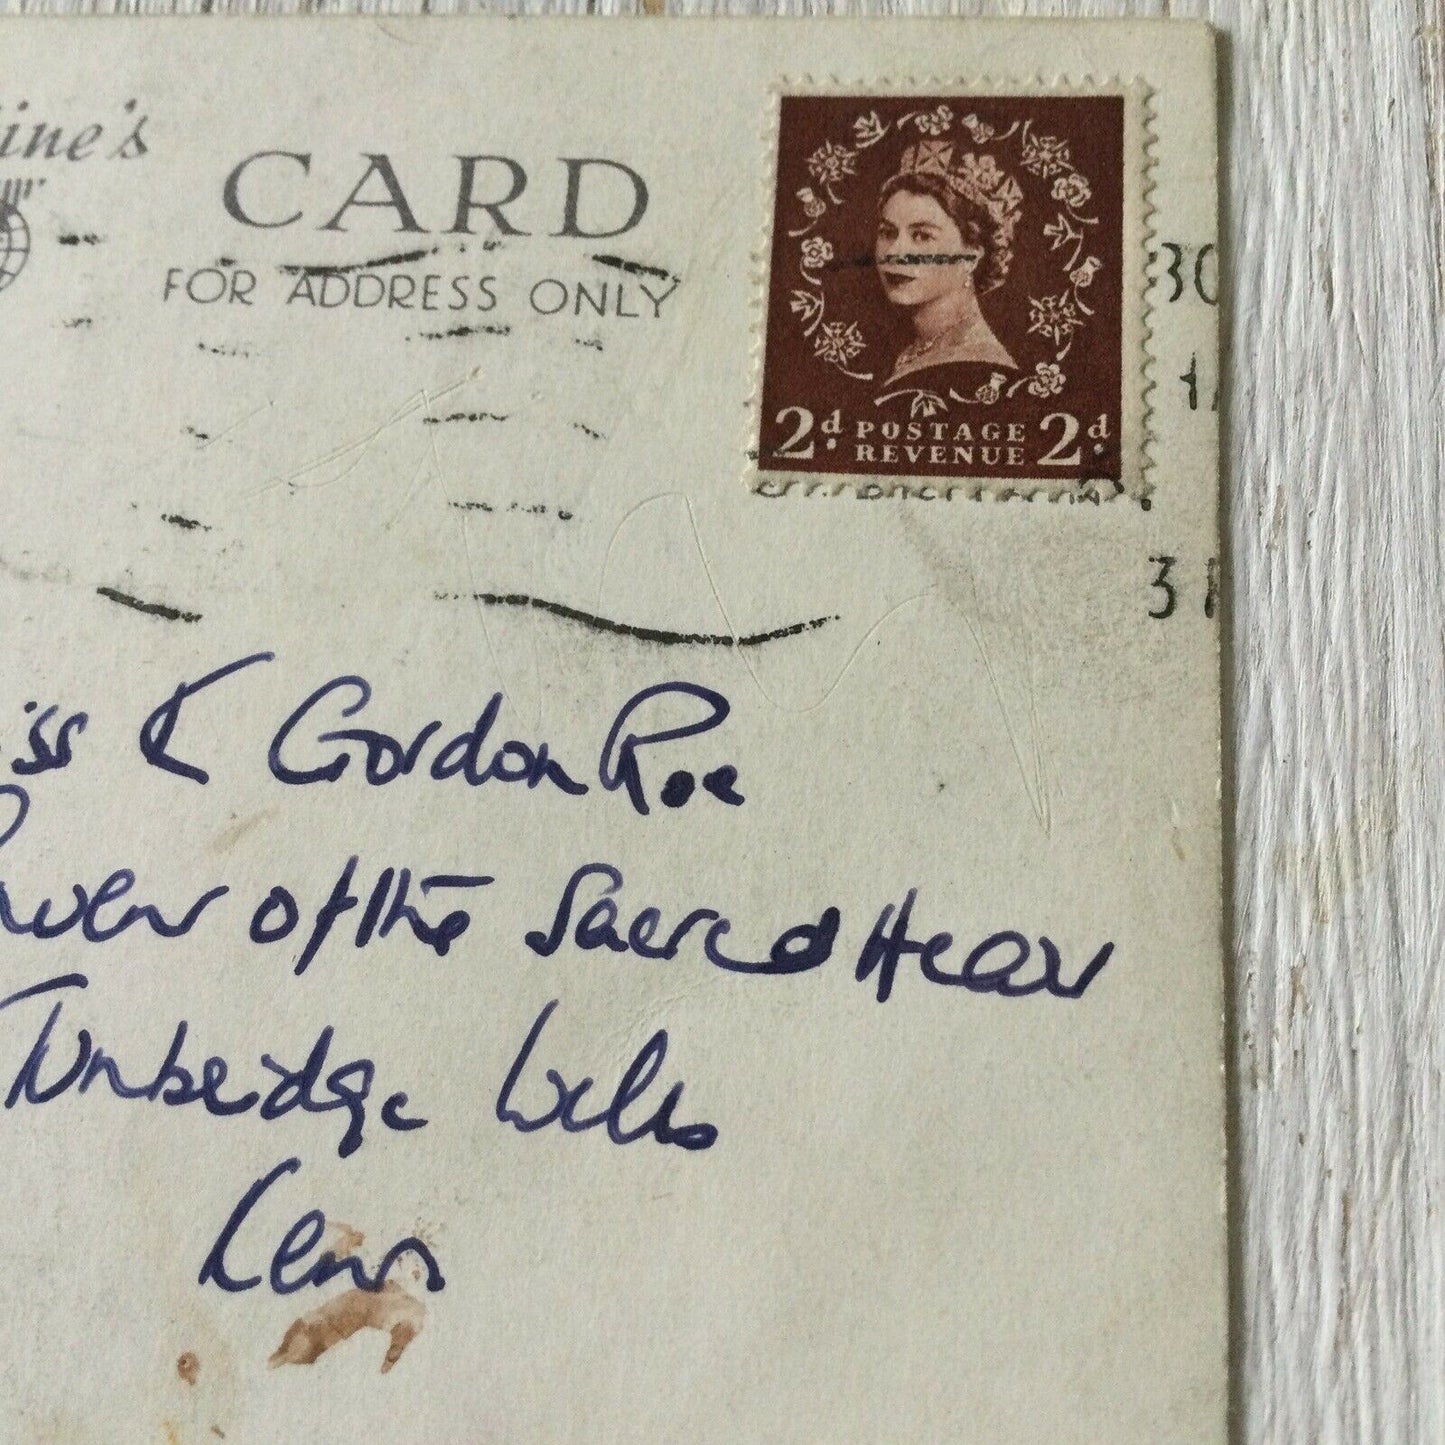 ine's
CARD
FOR ADDRESS ONLY
2d. POSTAGE REVENUE 2d.
30
31
iss K Gordon Roe
of the Sacred Heart
Tunbridge Wells
Kent